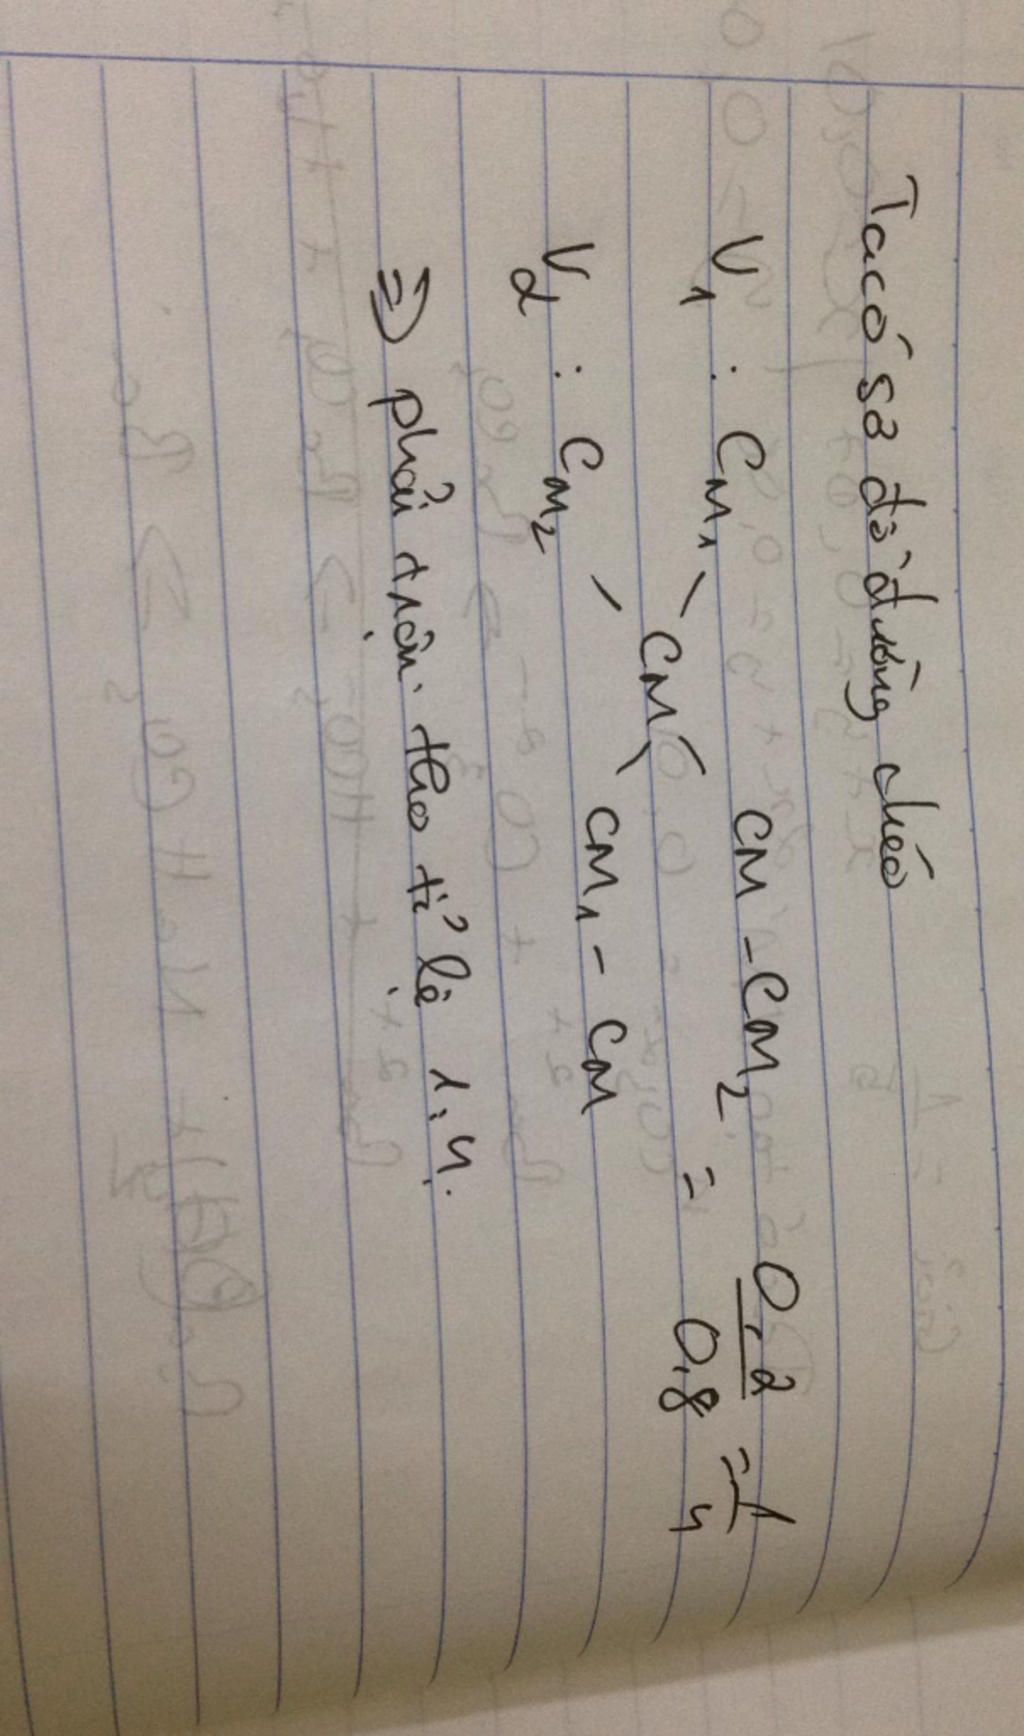 Ta có sơ đồ đường chéo
V1 : CM1 CM - CM2
CM = 0,2 / 0,8 = 1 / 4
V2 : CM2 CM1 - CM
=> phải trộn theo tỉ lệ 1:4.